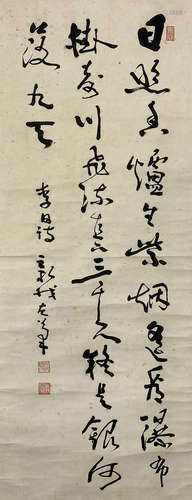 日照香爐生紫烟遙看瀑布
掛前川飛流直下三千尺疑是銀河
落九天
李白詩 新我左筆